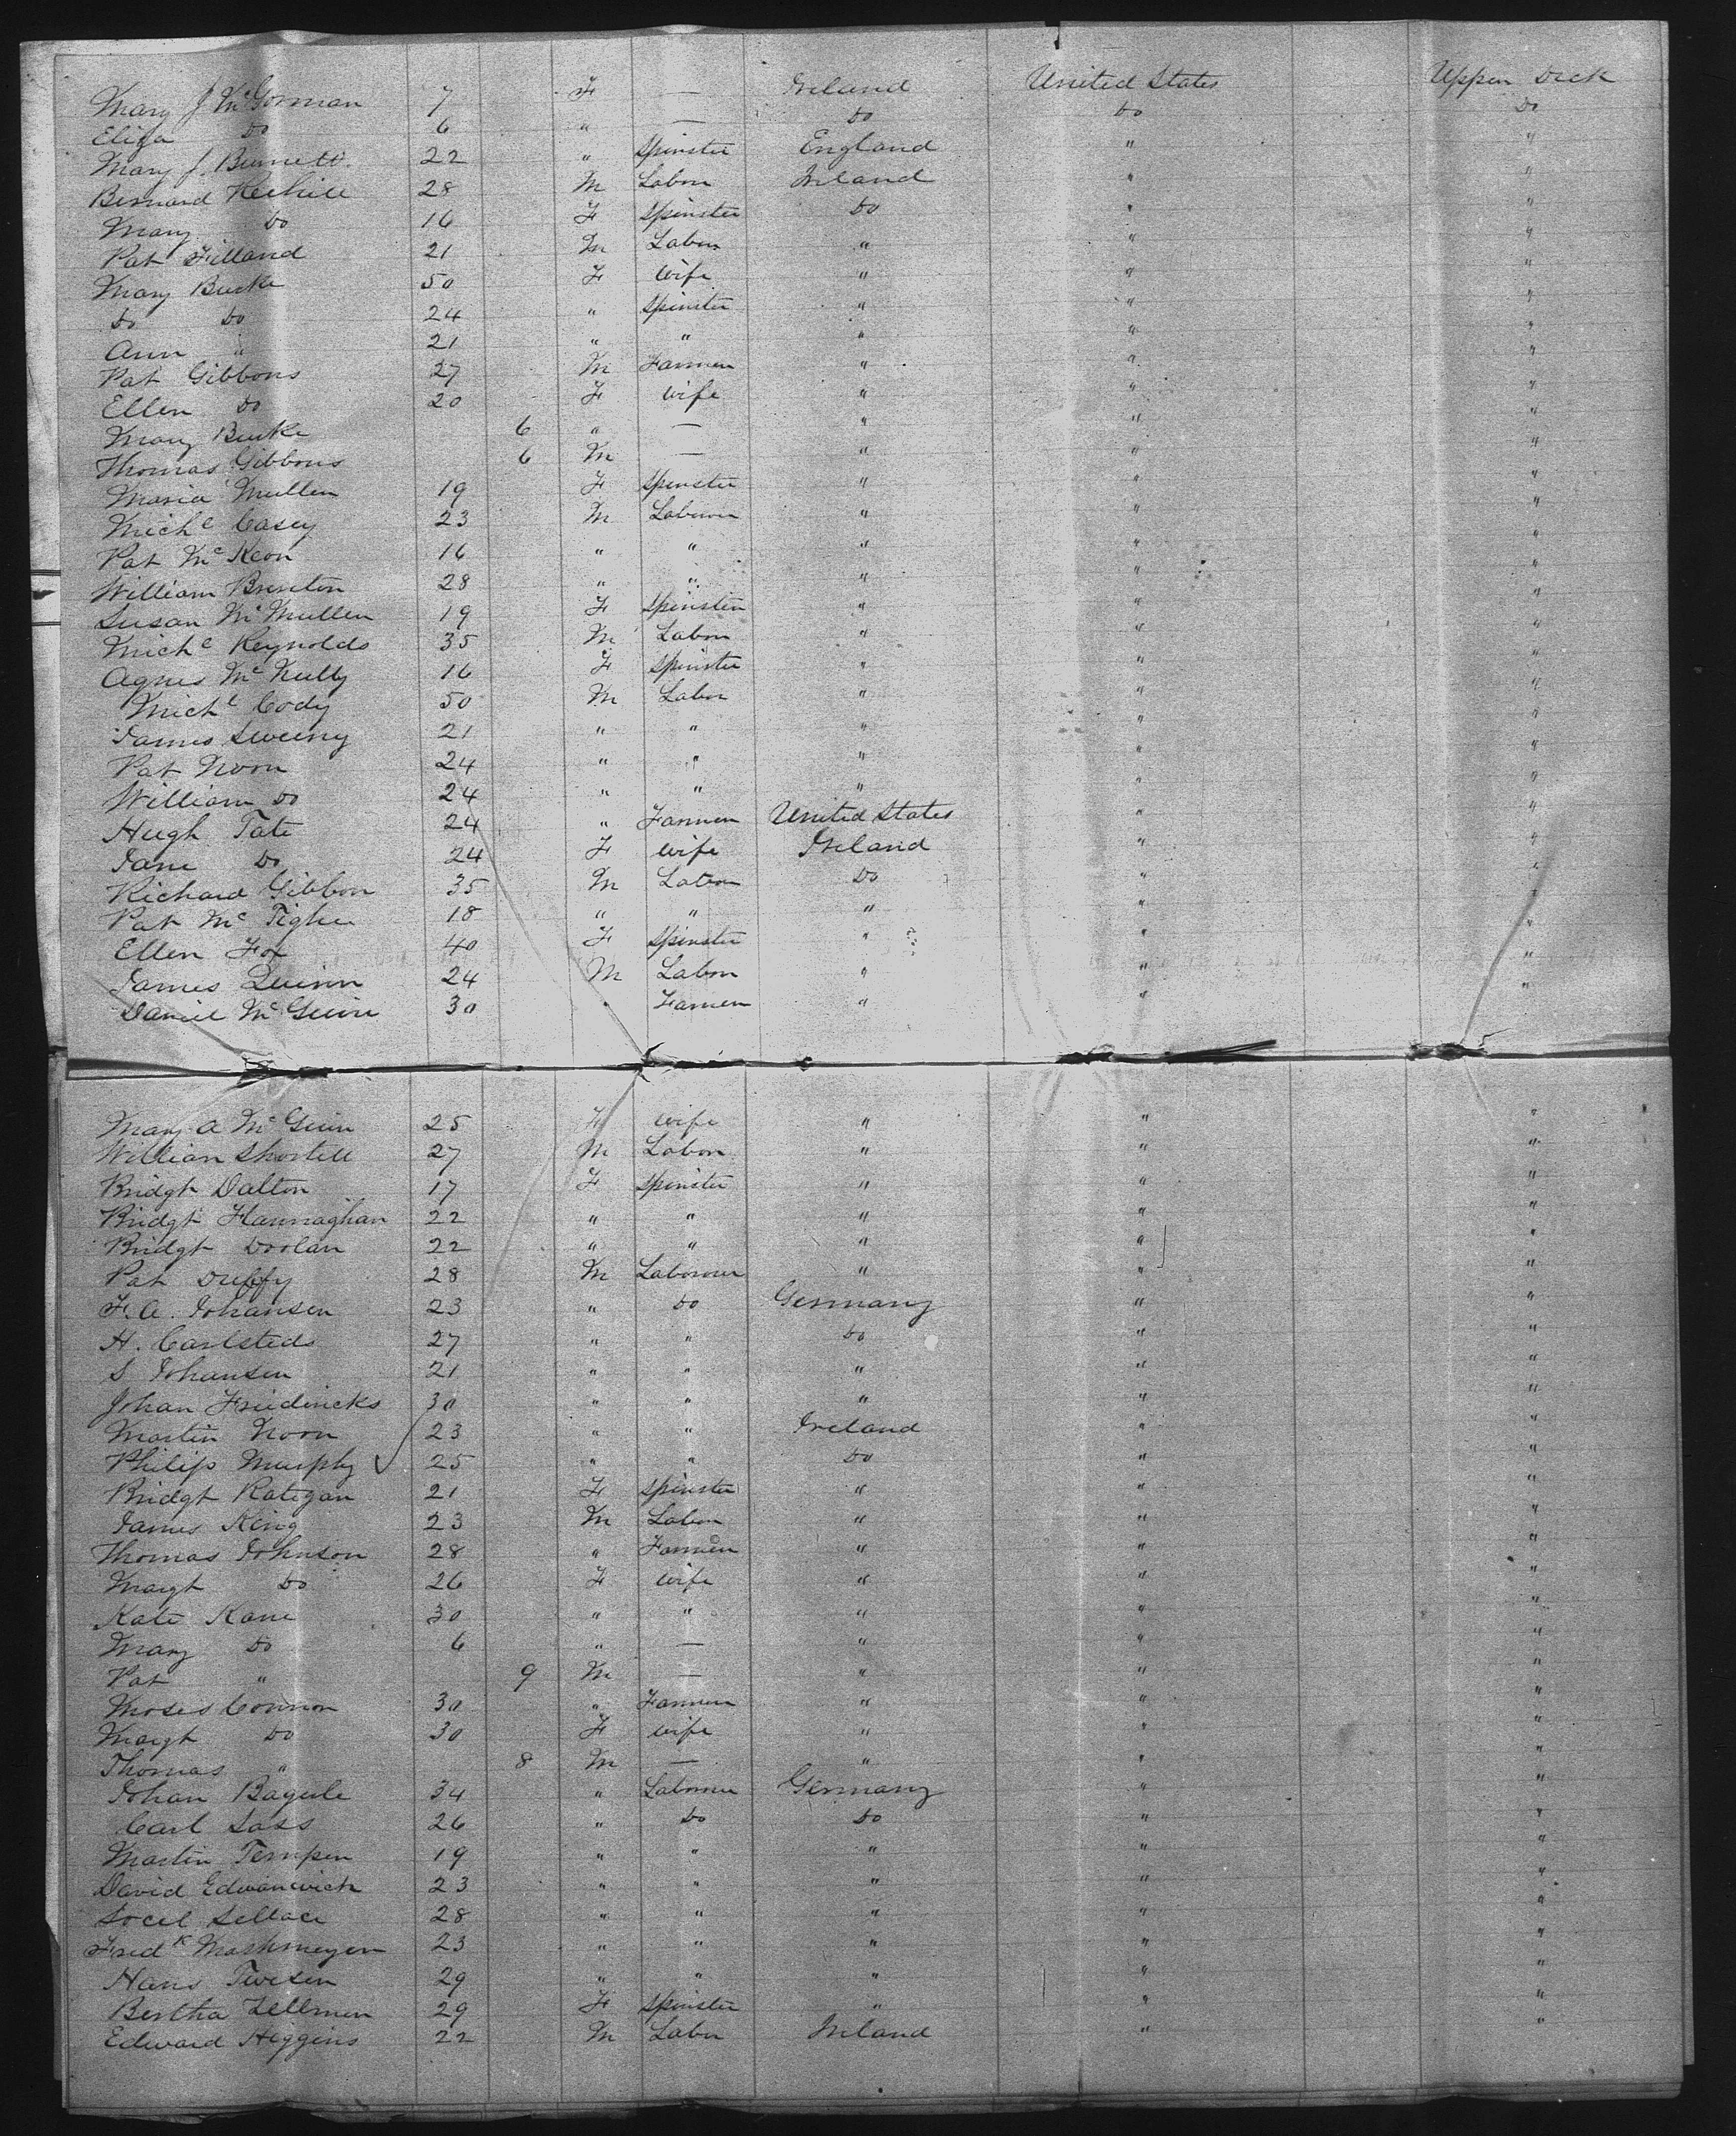 Mary J McGorman 7 F — Ireland United States Upper Deck
Eliza Do 6 " — Do Do Do
Mary J. Burnett 22 " Spinster England " "
Bernard Keehill 28 M Labor Ireland " "
Mary Do 16 F Spinster Do " "
Pat Filland 21 M Labor " " "
Mary Burke 50 F Wife " " "
Do Do 24 " Spinster " " "
Ann " 21 " " " " "
Pat Gibbons 27 M Farmer " " "
Ellen Do 20 F Wife " " "
Mary Burke 6 " — " " "
Thomas Gibbons 6 M — " " "
Maria Mullen 19 F Spinster " " "
Michl Casey 23 M Labourer " " "
Pat McKeon 16 " " " " "
William Brenton 28 " " " " "
Susan McMullen 19 F Spinster " " "
Michl Reynolds 35 M Labor " " "
Agnes McNully 16 F Spinster " " "
Michl Cody 50 M Labor " " "
James Sweeny 21 " " " " "
Pat Noon 24 " " " " "
William Do 24 " " " " "
Hugh Tate 24 " Farmer United States " "
Jane Do 24 F Wife Ireland " "
Richard Gibbon 35 M Labor Do " "
Pat McTighe 18 " " " " "
Ellen Fox 40 F Spinster " " "
James Quinn 24 M Labor " " "
Daniel McGuin 30 Farmer " " "
Mary A McGuin 25 F Wife " " "
William Shortell 27 M Labor " " "
Bridgt Dalton 17 F Spinster " " "
Bridgt Hannaghan 22 " " " " "
Bridgt Doolan 22 " " " " "
Pat Duffy 28 M Labourer " " "
F. A. Johansen 23 " Do Germany " "
H. Carlsteds 27 " " Do " "
S Johansen 21 " " " " "
Johan Friedericks 30 " " " " "
Martin Noon 23 " " Ireland " "
Philip Murphy 25 " " Do " "
Bridgt Rategan 21 F Spinster " " "
James King 23 M Labor " " "
Thomas Johnson 28 " Farmer " " "
Margt Do 26 F Wife " " "
Kate Kane 30 " " " " "
Mary Do 6 " — " " "
Pat " 9 M — " " "
Moses Connor 30 " Farmer " " "
Margt Do 30 F Wife " " "
Thomas " 8 M — " " "
Johan Bagule 34 " Labourer Germany " "
Carl Sass 26 " Do Do " "
Martin Tempen 19 " " " " "
David Edwanwich 23 " " " " "
Socel Sellace 28 " " " " "
Fredk Mashmeyer 23 " " " " "
Hans Twesen 29 " " " " "
Bertha Zellmen 29 F Spinster " " "
Edward Higgins 22 M Labor Ireland " "